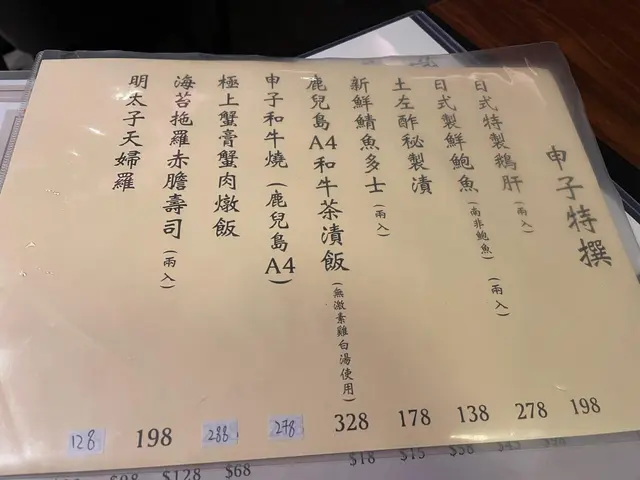 申子特撰
日式特製鵝肝(兩入) 198
日式製鮮鮑魚(南非鮑魚)(兩入) 278
土左酢秘製漬 138
新鮮鯖魚多士(兩入) 178
鹿兒島A4和牛茶漬飯(無激素雞白湯使用) 328
申子和牛燒(鹿兒島A4) 278
極上蟹膏蟹肉燉飯 288
海苔拖羅赤膽壽司(兩入) 198
明太子天婦羅 128
$128 $68